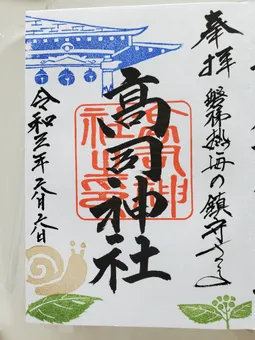 奉拝
磐梯熱海の鎮守さま
高司神社
高司神社之印
令和三年六月六日